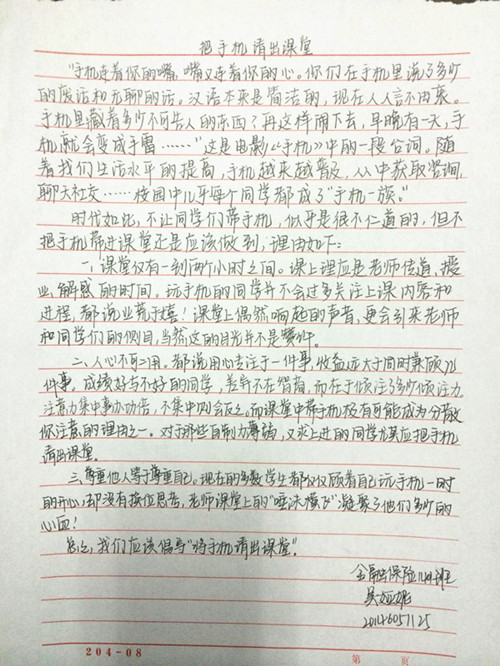 把手机请出课堂
“手机连着你的嘴，嘴又连着你的心。你们在手机里说了多少
的废话和无聊的话。汉语本来是简洁的，现在人人言不由衷。
手机里藏着多少不可告人的东西？再这样闹下去，早晚有一天，手
机就会变成手雷……”这是电影《手机》中的一段台词。随
着我们生活水平的提高，手机越来越普及，从中获取咨询，
聊天社交……校园中几乎每个同学都成了“手机一族。”
时代如此，不让同学们带手机，似乎是很不仁道的，但不
把手机带进课堂还是应该做到，理由如下：
一、课堂仅有一刻两个小时之间。课上理应是老师传道，授
业，解惑的时间。玩手机的同学并不会过多关注上课内容和
进程，都说业荒于嬉！课堂上偶然响起的声音，更会引来老师
和同学们的侧目，当然这的目光并不是赞许。
二、人心不可二用。都说用心专注于一件事，收益远大于同时兼顾几
件事。成绩好与不好的同学，差异不在智商，而在于倾注多少倾注力
注意力集中事办功倍，不集中则会反之，而课堂中带手机极有可能成为分散
你注意的理由之一。对于那些自制力薄弱，又求上进的同学尤其应把手机
请出课堂。
三、尊重他人等于尊重自己。现在的多数学生都仅仅顾着自己玩手机一时
的开心，却没有换位思考，老师课堂上的“唾沫横飞”凝聚了他们多少的
心血！
总之，我们应该倡导“将手机请出课堂”。
金融保险1421班
吴娅妮
201426051125
204-08
第 页